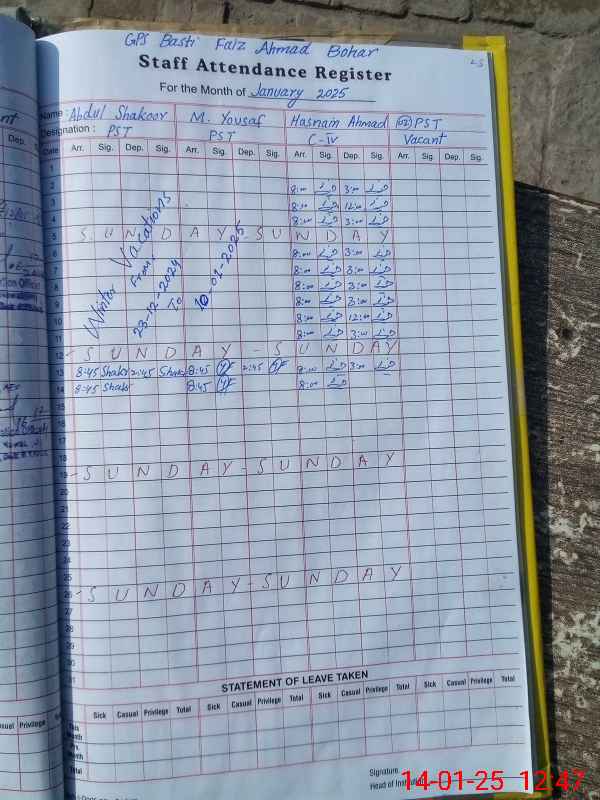 GPS Basti Faiz Ahmad Bohar
Staff Attendance Register
For the Month of January 2025
Name: Abdul Shakoor M. Yousaf Hasnain Ahmad (02) PST
Designation: PST PST C-IV Vacant
Date Arr. Sig. Dep. Sig. Arr. Sig. Dep. Sig. Arr. Sig. Dep. Sig. Arr. Sig. Dep. Sig.
1
2 8:00 3:00
3 8:00 12:00
4 8:00 3:00
5 SUNDAY - SUNDAY
6 8:00 3:00
7 8:00 3:00
8 8:00 3:00
9 8:00 3:00
10 8:00 12:00
11 8:00 3:00
Winter Vacations
From
23-12-2024
To
10-01-2025
12 - SUNDAY - SUNDAY
13 8:45 Shakr 2:45 Shakr 8:45 2:45 8:00 3:00
14 8:45 Shakr 8:45 8:00
15
16
17
18
19 - SUNDAY - SUNDAY
20
21
22
23
24
25
26 - SUNDAY - SUNDAY
27
28
29
30
31
STATEMENT OF LEAVE TAKEN
Sick Casual Privilege Total Sick Casual Privilege Total Sick Casual Privilege Total Sick Casual Privilege Total
This Month
Prv. Month
Total
Signature
Head of Institution
14-01-25 12:47